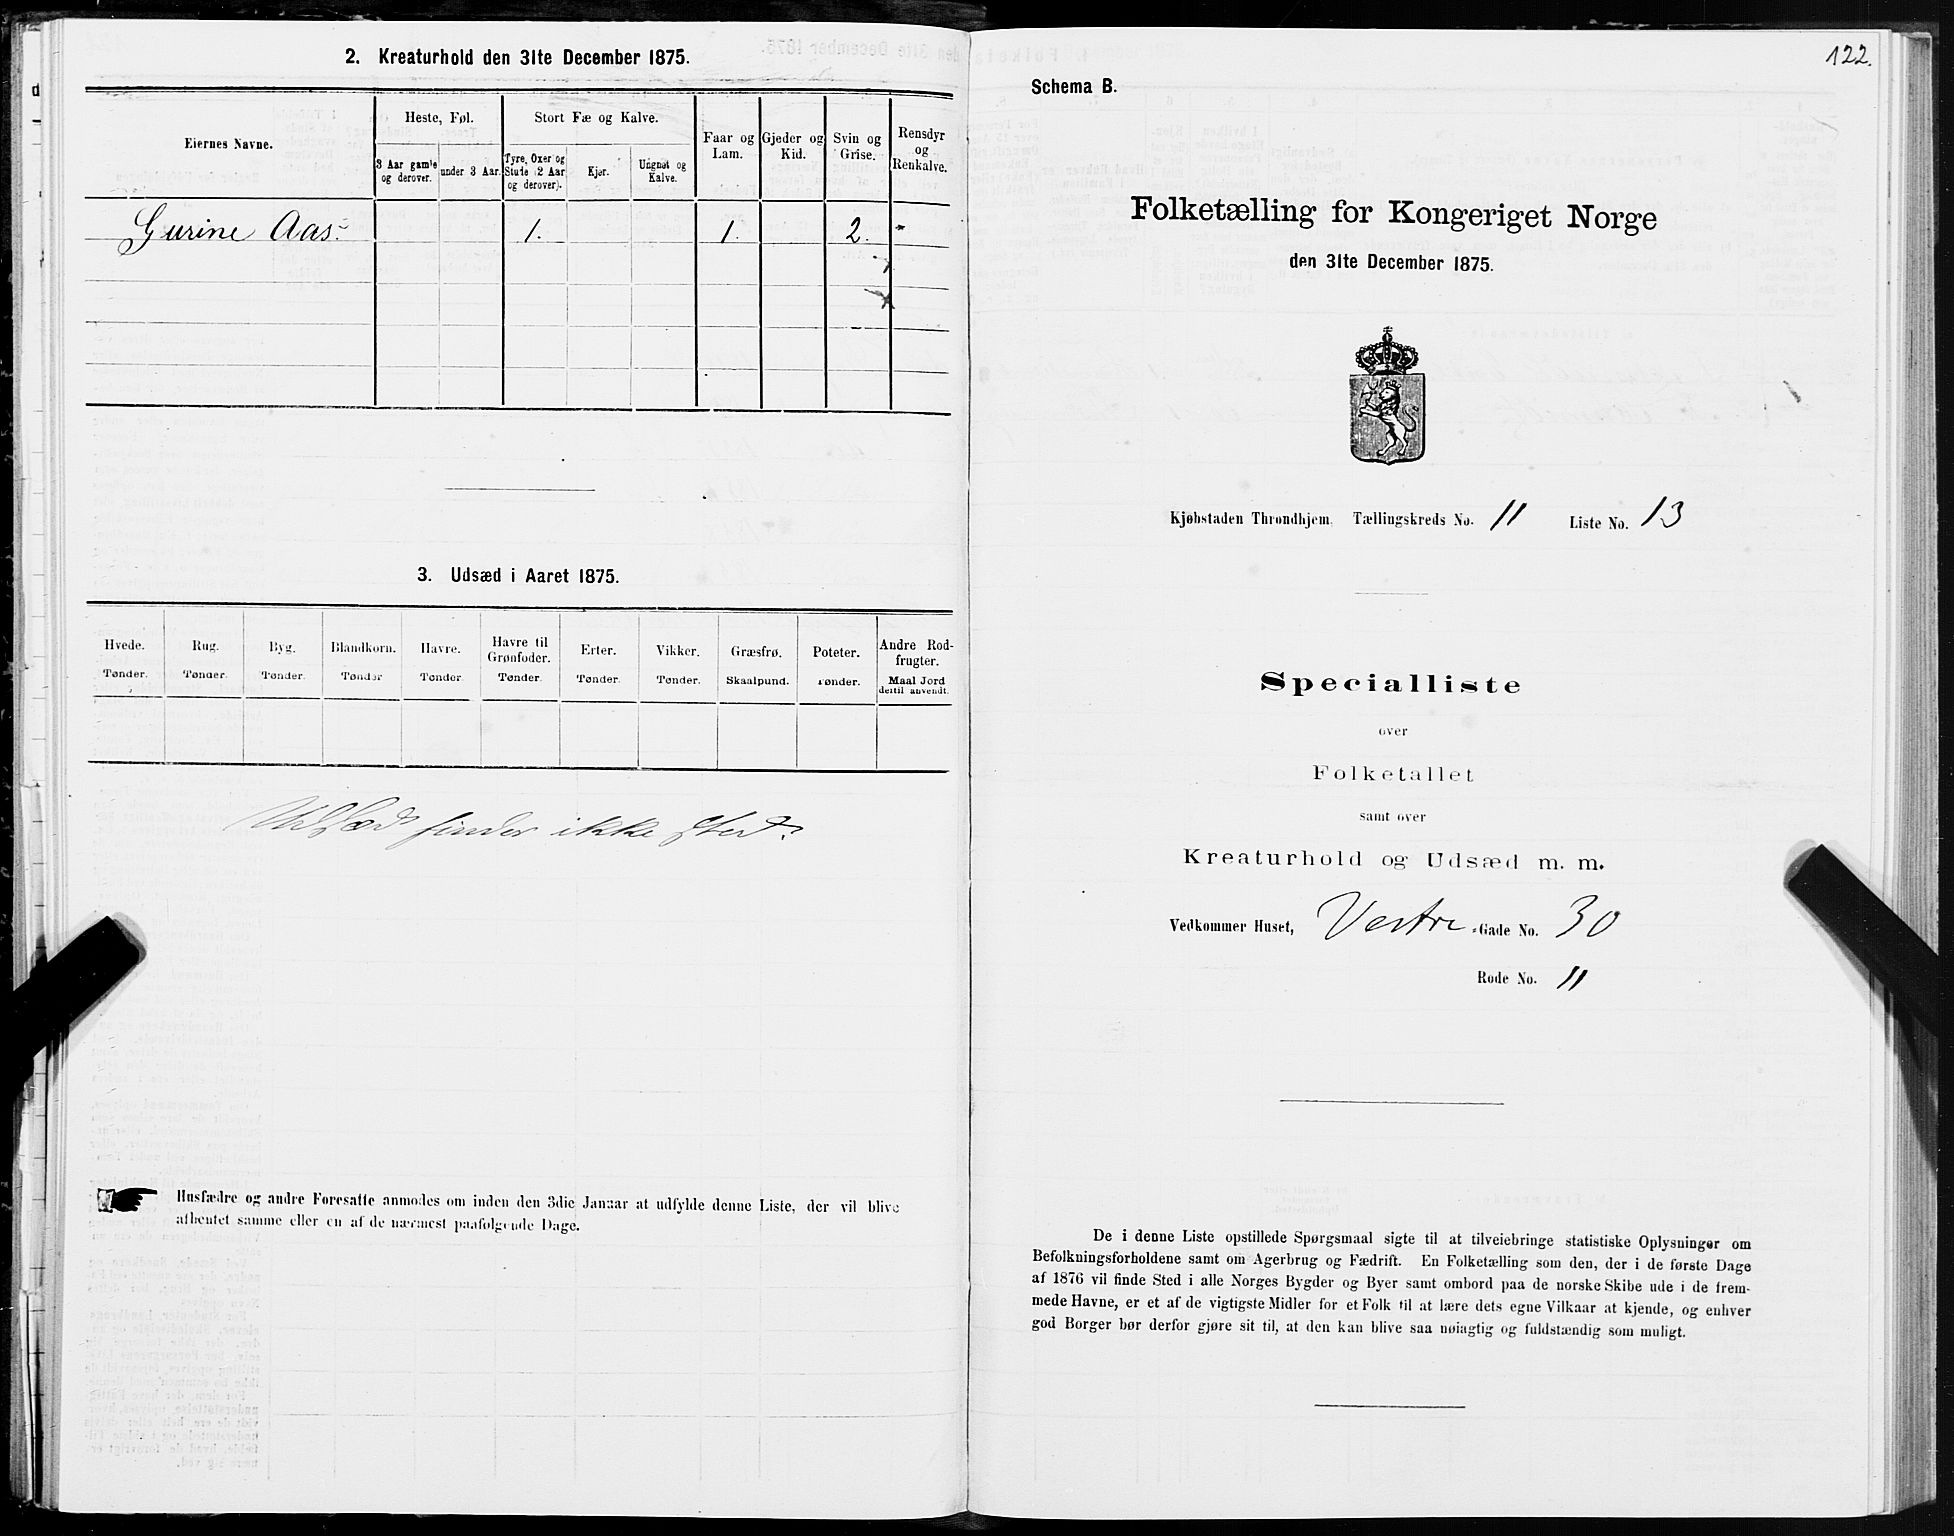 2. Kreaturhold den 31te December 1875.
Eiernes Navne.
Heste, Føl.
Stort Fæ og Kalve.
Faar og Lam.
Gjeder og Kid.
Svin og Grise.
Rensdyr og Renkalve.
3 Aar gamle og derover.
under 3 Aar.
Tyre, Oxer og Stude (2 Aar og derover).
Kjør.
Ungnøt og Kalve.
Gurine Aas. 1. 1. 2. "
3. Udsæd i Aaret 1875.
Hvede. Rug. Byg. Blandkorn. Havre. Havre til Grønfoder. Erter. Vikker. Græsfrø. Poteter. Andre Rodfrugter.
Tønder. Tønder. Tønder. Tønder Tønder. Tønder. Tønder. Tønder. Skaalpund. Tønder. Maal Jord dertil anvendt.
Udsæd finder ikke sted.
Husfædre og andre Foresatte anmodes om inden den 3die Januar at udfylde denne Liste, der vil blive
afhentet samme eller en af de nærmest paafølgende Dage.
122.
Schema B.
Folketælling for Kongeriget Norge
den 31te December 1875.
Kjøbstaden Throndhjem. Tællingskreds No. 11 Liste No. 13
Specialliste
over
Folketallet
samt over
Kreaturhold og Udsæd m. m.
Vedkommer Huset, Vestre -Gade No. 30
Rode No. 11
De i denne Liste opstillede Spørgsmaal sigte til at tilveiebringe statistiske Oplysninger om
Befolkningsforholdene samt om Agerbrug og Fædrift. En Folketælling som den, der i de første Dage
af 1876 vil finde Sted i alle Norges Bygder og Byer samt ombord paa de norske Skibe ude i de frem-
mede Havne, er et af de vigtigste Midler for et Folk til at lære dets egne Vilkaar at kjende, og enhver
god Borger bør derfor gjøre sit til, at den kan blive saa nøiagtig og fuldstændig som muligt.